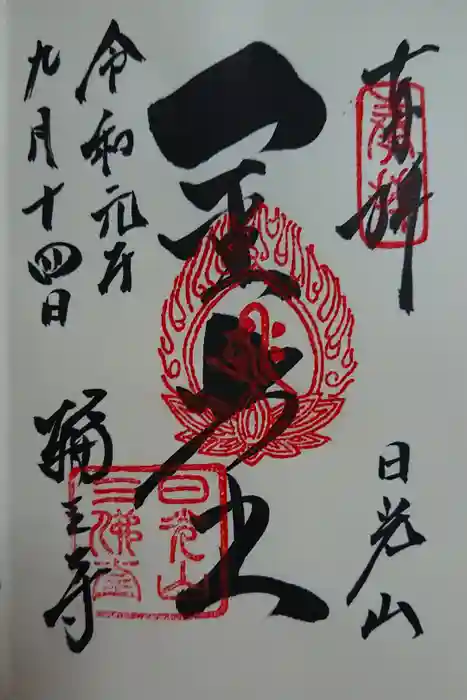 奉拝
日光山
奉拝
日光山
三佛堂
令和元年
九月十四日
輪王寺